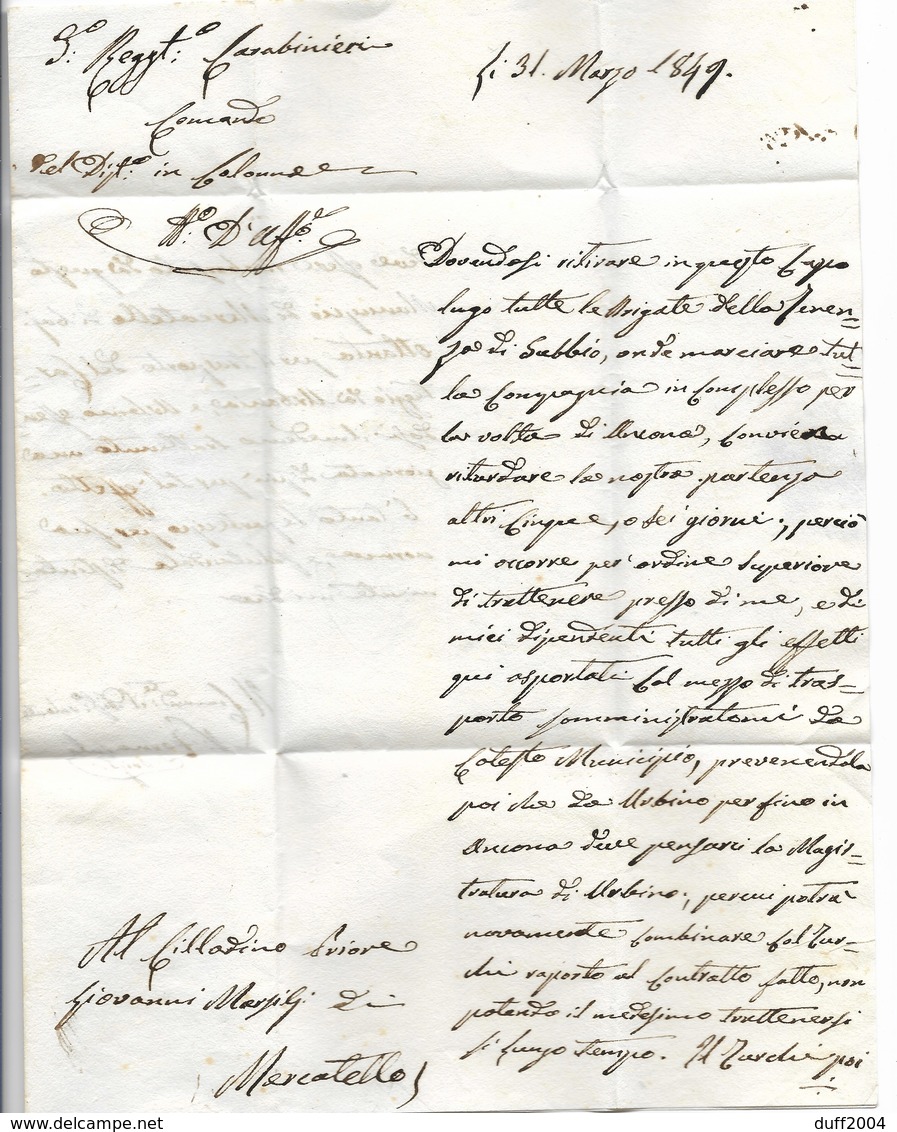 Regg.to Carabinieri
Comando
del Dist.o in Colonna
li 31. Marzo 1849.
N.o D'Uff.o
Dovendosi ritirare in questo Capo
lugo tutte le Brigate della Tenen=
za di Subbio, onde marciare tut=
ta Compagnia in Complesso per
la volta di Ancona, conviene
ritardare la nostra partenza
altri Cinque, o sei giorni; perciò
mi occorre per ordine superiore
di trattenere presso di me, e di
miei dipendenti tutti gli effetti
qui asportati Col mezzo di tras=
porto somministratomi da
Cotesto Municipio, prevenendola
poi che da Urbino perfino in
Ancona deve pensarci la Magis=
tratura di Urbino; percui potrà
novamente combinare Col Tur=
chi raporto al Contratto fatto, non
potendo il medesimo trattenersi
si lungo tempo. Il Turchi poi
Al Cittadino Priore
Giovanni Marsilj di
Mercatello
duff2004